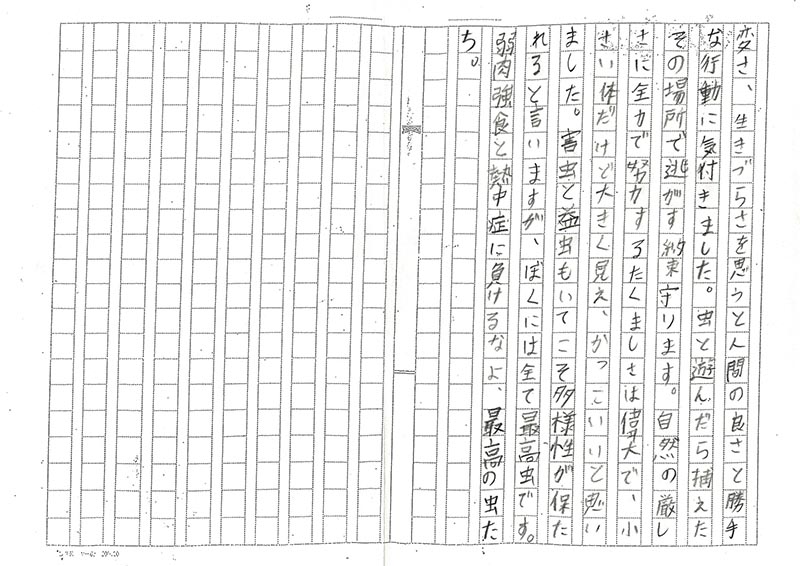 変さ、生きづらさを思うと人間の良さと勝手
な行動に気付きました。虫と遊んだら捕えた
その場所で逃がす約束守ります。自然の厳し
さに全力で努力するたくましさは偉大で、小
さい体だけど大きく見え、かっこいいと思い
ました。害虫と益虫もいてこそ多様性が保た
れると言いますが、ぼくには全て最高虫です。
弱肉強食と熱中症に負けるなよ、最高の虫た
ち。